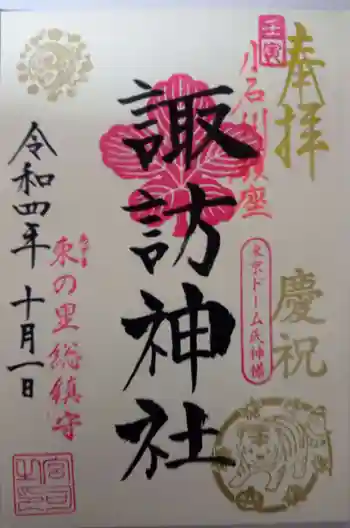 奉拝
慶祝
壬寅
小石川鎮座
東京ドーム氏神様
諏訪神社
東の里総鎮守
令和四年 十月一日